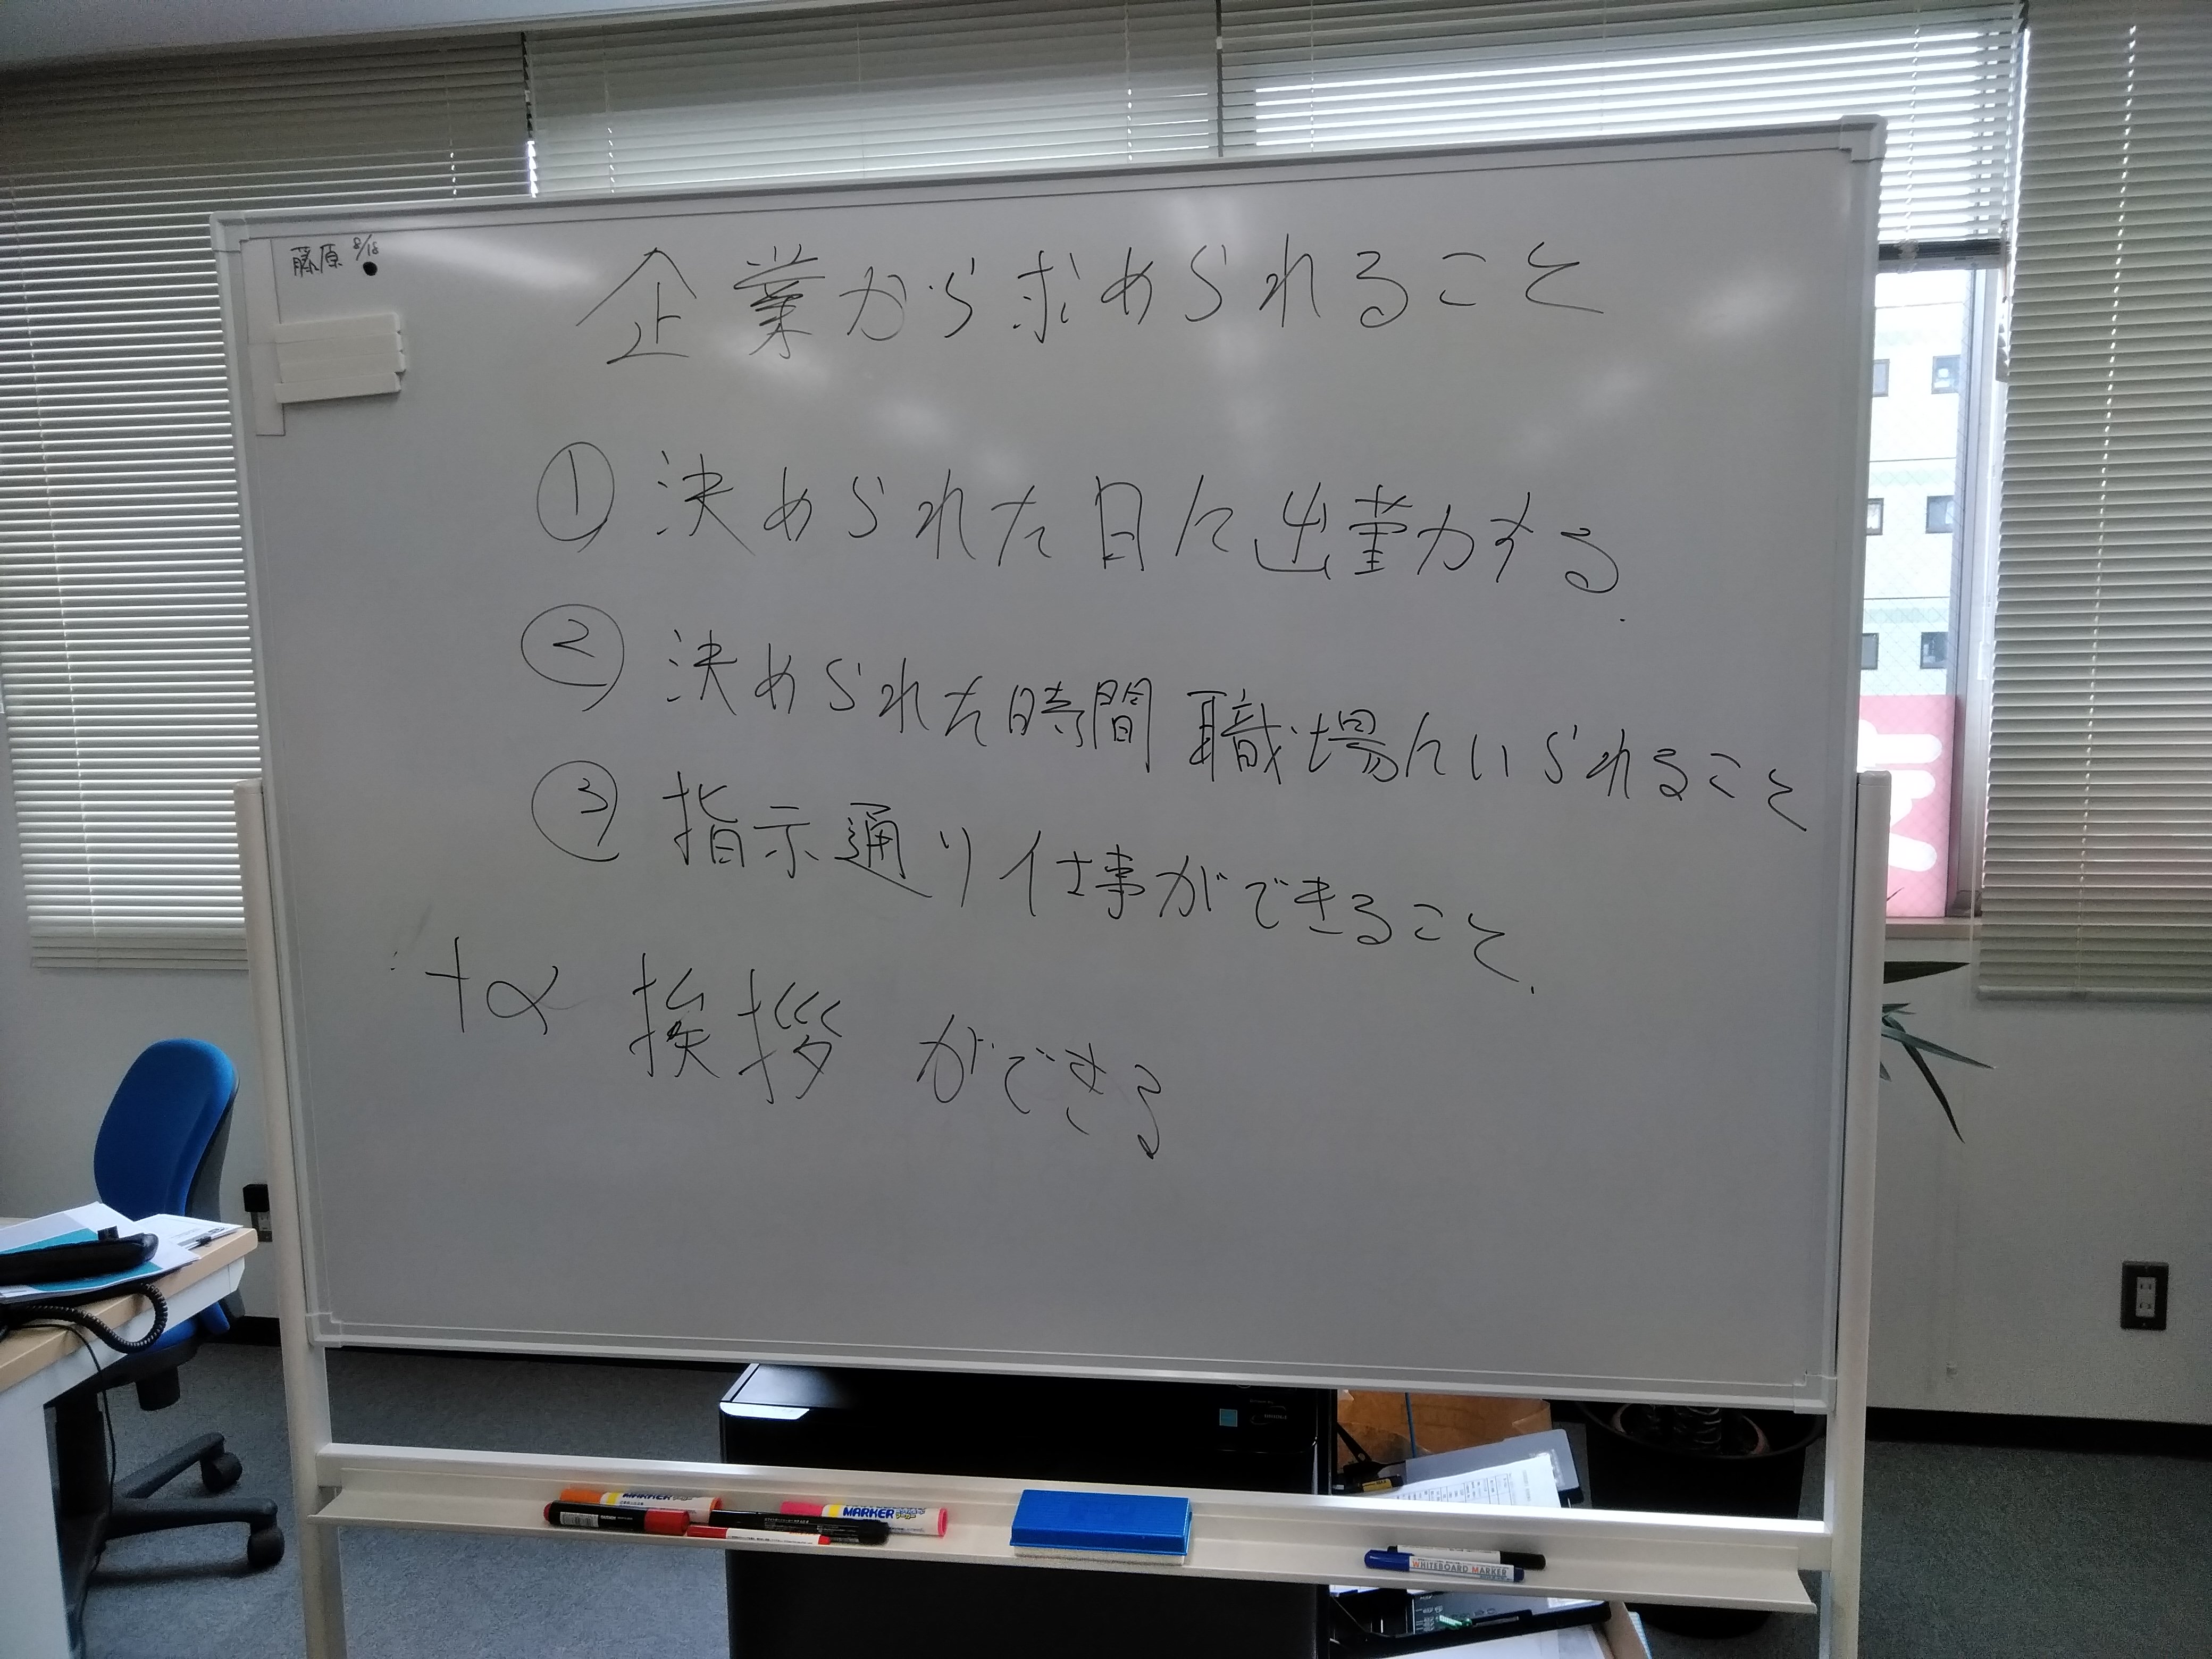 藤原 8/18
企業から求められること
① 決められた日に出勤する.
② 決められた時間 職場にいられること
③ 指示通り仕事ができること.
+α 挨拶 ができる
MARKER
MARKER
WHITEBOARD MARKER